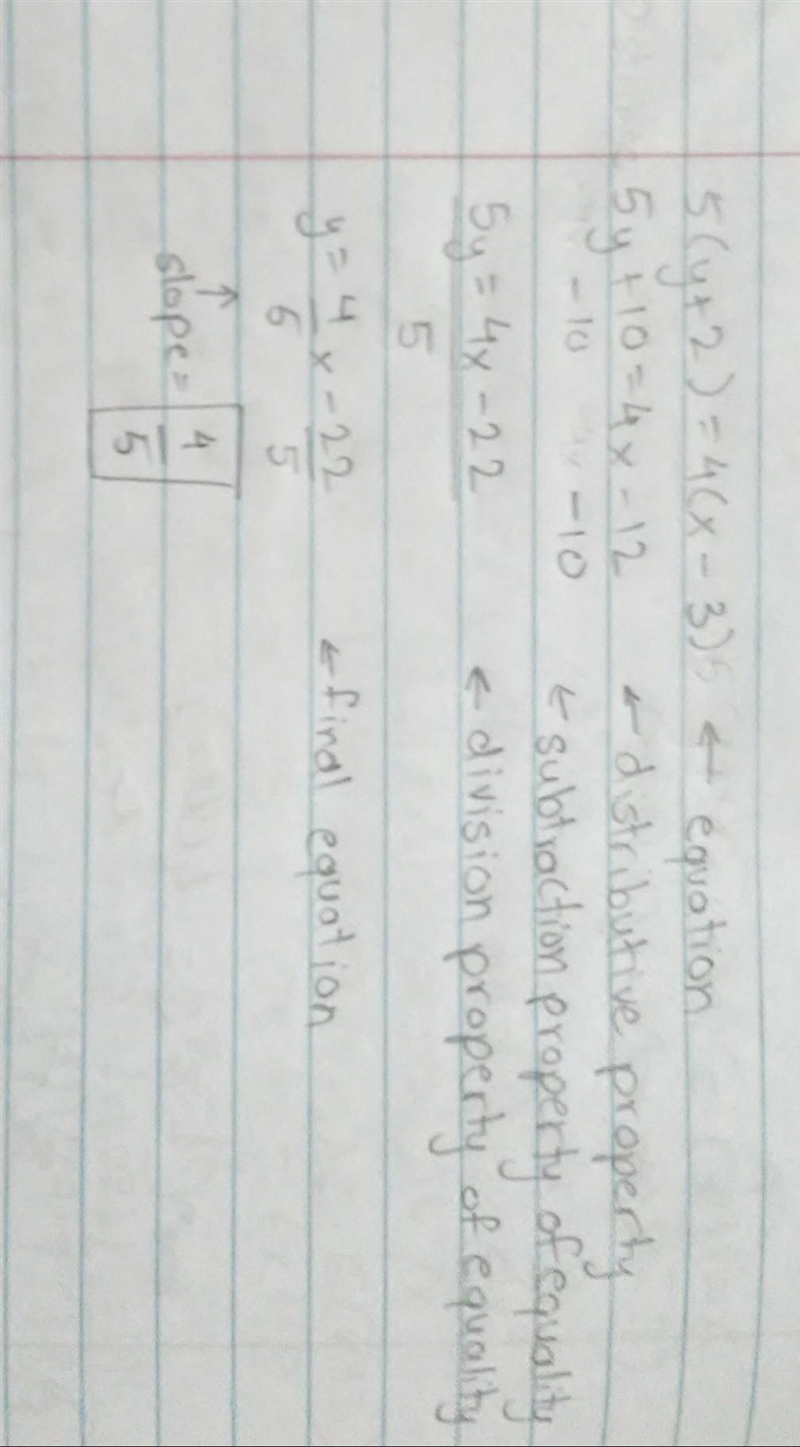 5(y+2)=4(x-3) ← equation
5y+10=4x-12 ← distributive property
-10 -10 ← subtraction property of equality
5y=4x-22 ← division property of equality
5
y=4/6x-22/5 ← final equation
↑
slope= 4/5